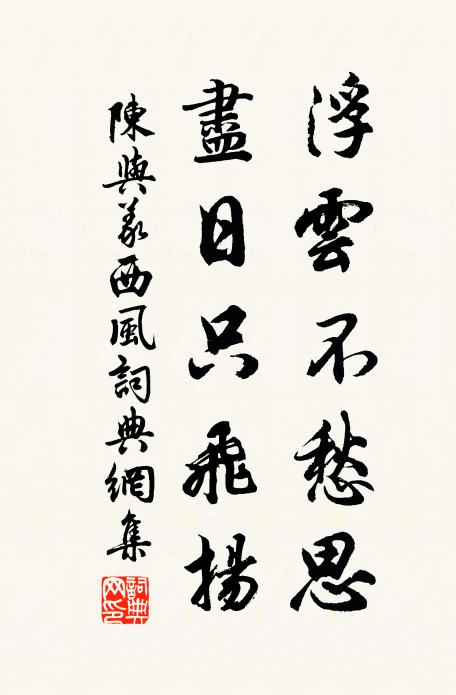 浮雲不愁思
盡日只飛揚
陳與義西風詞典網集
詞典網印